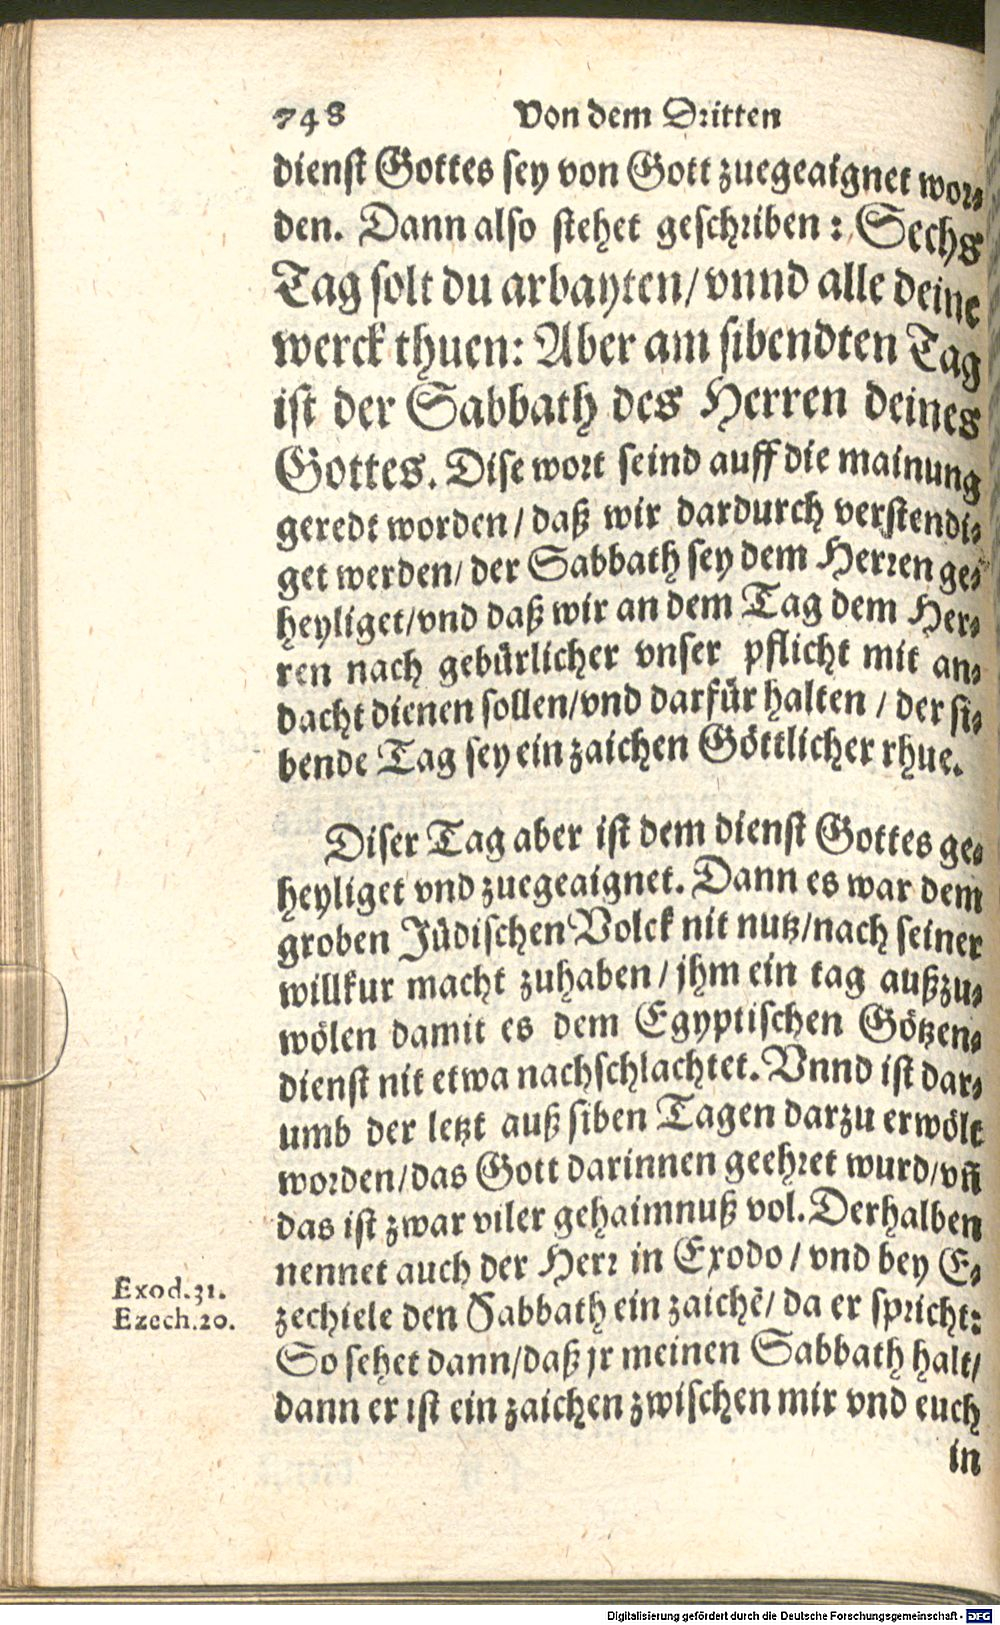 748 Von dem Dritten
dienst Gottes sey von Gott zuegeaignet wor⸗
den. Dann also stehet geschriben: Sechs
Tag solt du arbayten/ vnnd alle deine
werck thuen: Aber am sibendten Tag
ist der Sabbath des Herren deines
Gottes. Dise wort seind auff die mainung
geredt worden/ daß wir dardurch verstendi⸗
get werden/ der Sabbath sey dem Herren ge⸗
heyliget/ vnd daß wir an dem Tag dem Her⸗
ren nach gebürlicher vnser pflicht mit an⸗
dacht dienen sollen/ vnd darfür halten / der si⸗
bende Tag sey ein zaichen Göttlicher rhue.
Diser Tag aber ist dem dienst Gottes ge⸗
heyliget vnd zuegeaignet. Dann es war dem
groben Jüdischen Volck nit nutz/ nach seiner
willkur macht zuhaben / jhm ein tag außzu⸗
wölen damit es dem Egyptischen Götzen⸗
dienst nit etwa nachschlachtet. Vnnd ist dar⸗
umb der letzt auß siben Tagen darzu erwölt
worden/ das Gott darinnen geehret wurd/ vñ
das ist zwar viler gehaimnuß vol. Derhalben
nennet auch der Herr in Exodo / vnd bey E⸗
Exod.31.
zechiele den Sabbath ein zaichē/ da er spricht:
Ezech.20.
So sehet dann/ daß jr meinen Sabbath halt/
dann er ist ein zaichen zwischen mir vnd euch
in
Digitalisierung gefördert durch die Deutsche Forschungsgemeinschaft - DFG